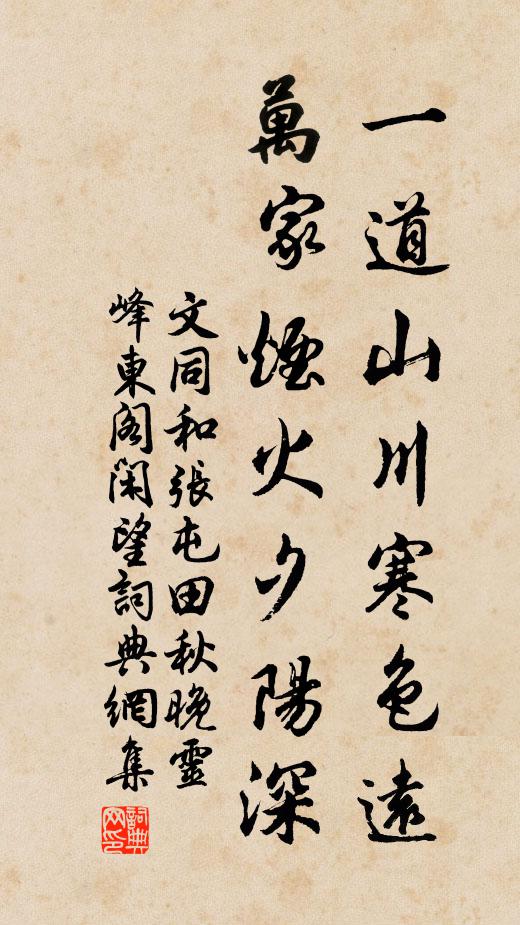 一道山川寒色遠
萬家煙火夕陽深
文同和張屯田秋晚靈
峰東閣閑望詞典網集
詞典网印